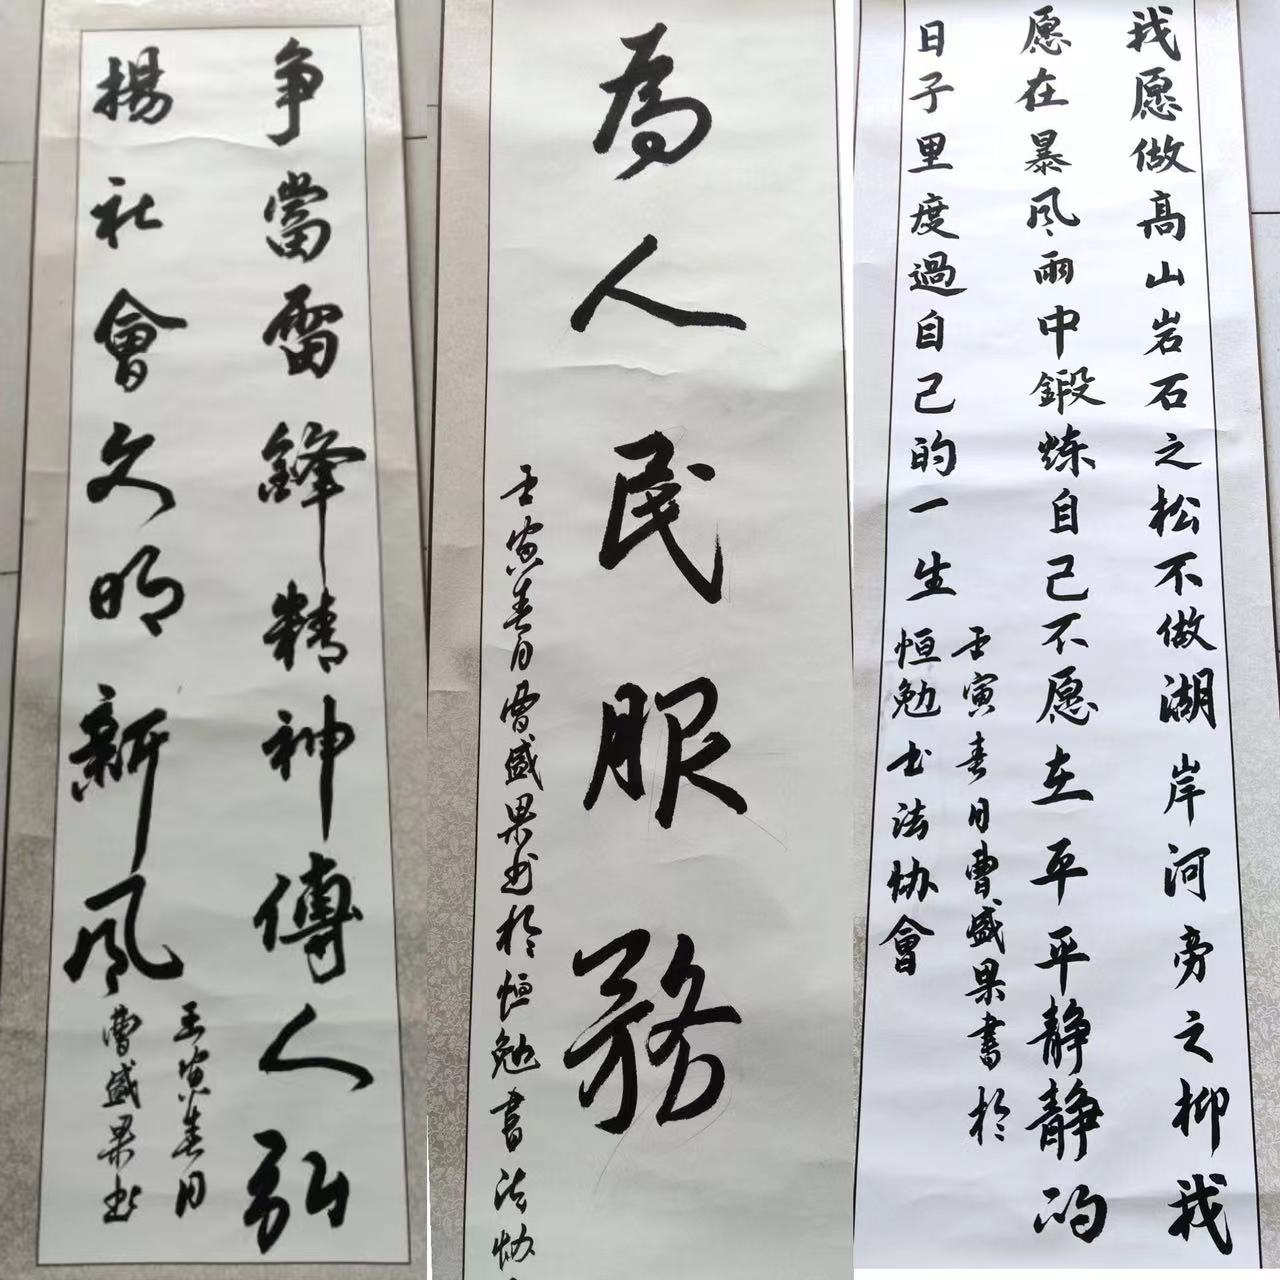 争當雷鋒精神傳人弘
揚社會文明新風
壬寅春月
曹盛果书
為人民服務
壬寅春月曹盛果书於恒勉書法协
我愿做高山岩石之松不做湖岸河旁之柳我
愿在暴风雨中鍛炼自己不愿在平平静静的
日子里度過自己的一生
壬寅春月曹盛果書於
恒勉书法协會